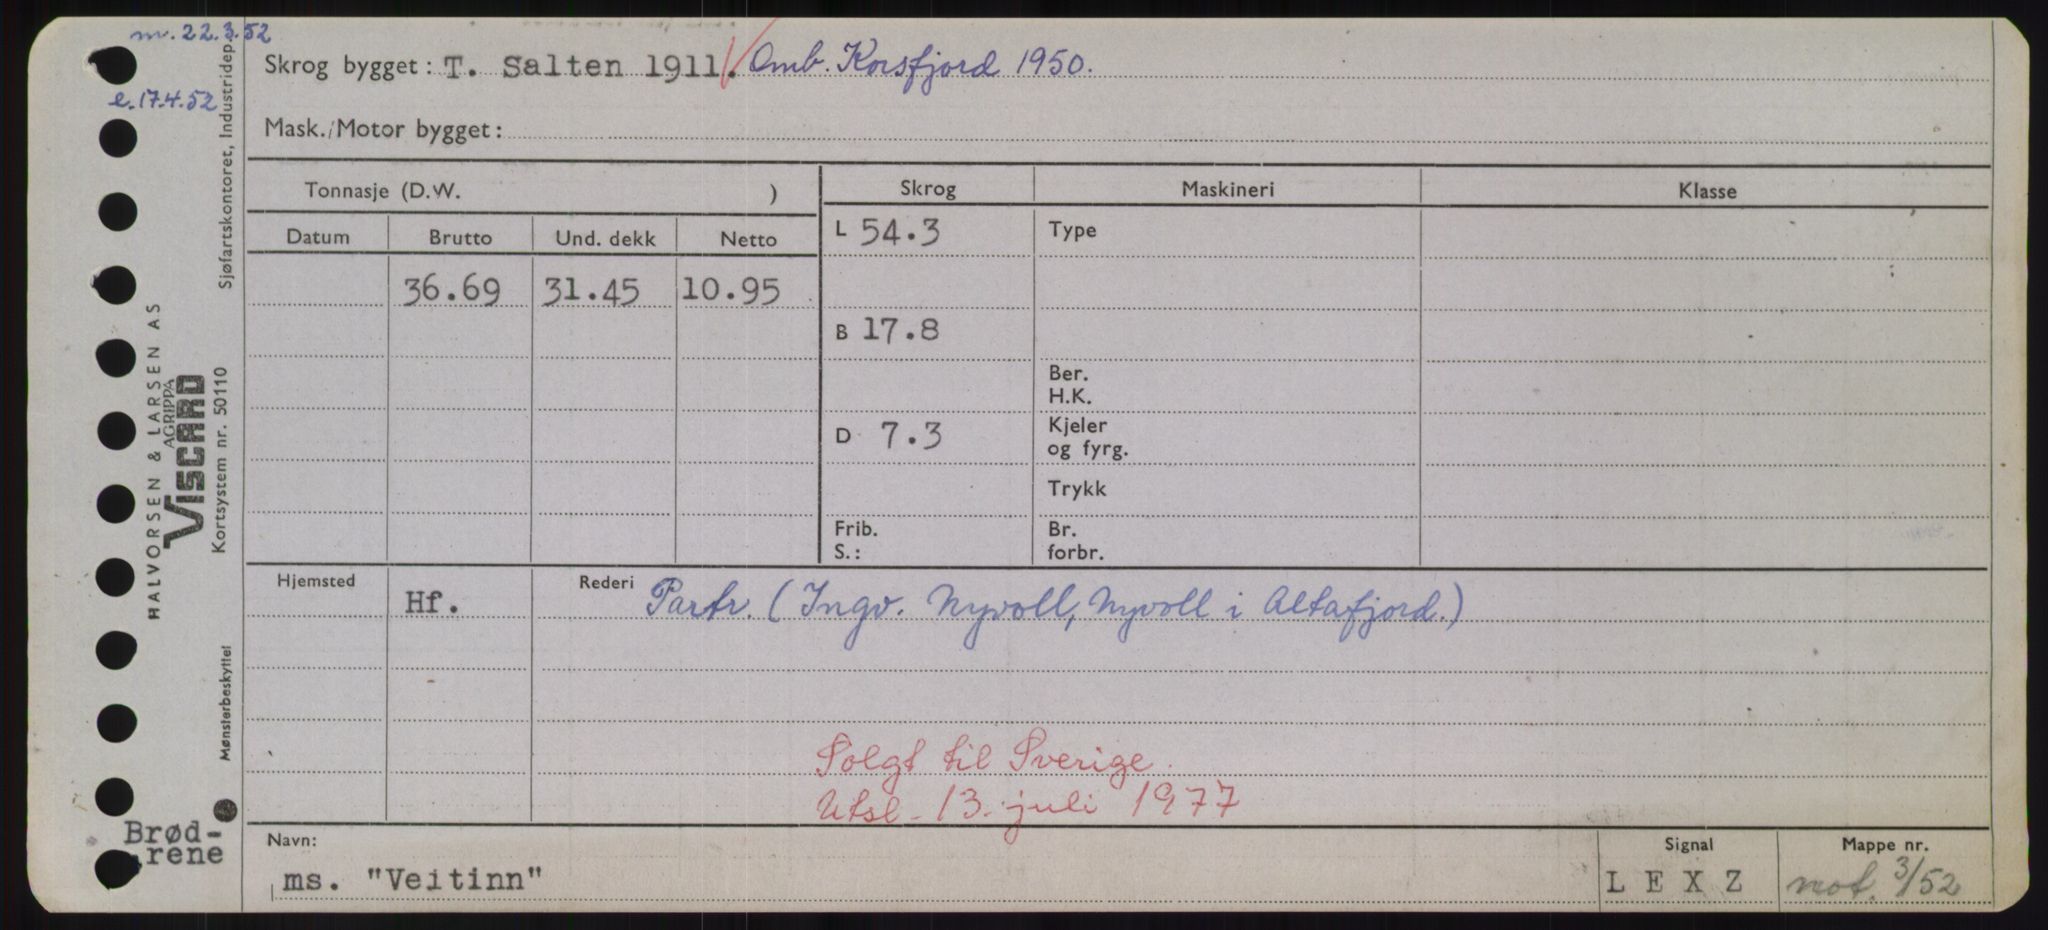 m. 22.3.52
e. 17.4.52
Skrog bygget: T. Salten 1911. Omb. Korsfjord 1950.
Mask./Motor bygget:
Tonnasje (D.W. )
Skrog Maskineri Klasse
Datum Brutto Und. dekk Netto
L 54.3 Type
36.69 31.45 10.95
B 17.8
Ber.
H.K.
D 7.3 Kjeler
og fyrg.
Trykk
Frib. Br.
S.: forbr.
Hjemsted Rederi
Hf. Partr. (Ingv. Nyvoll, Nyvoll i Altafjord.)
Solgt til Sverige.
Utsl. 13. juli 1977
Navn: Signal Mappe nr.
ms. "Veitinn" LEXZ not. 3/52
Brød-
rene
HALVORSEN & LARSEN AS
AGRIPPA
VISCARD
Kortsystem nr. 50110
Sjøfartskontoret, Industridep.
Mønsterbeskyttet